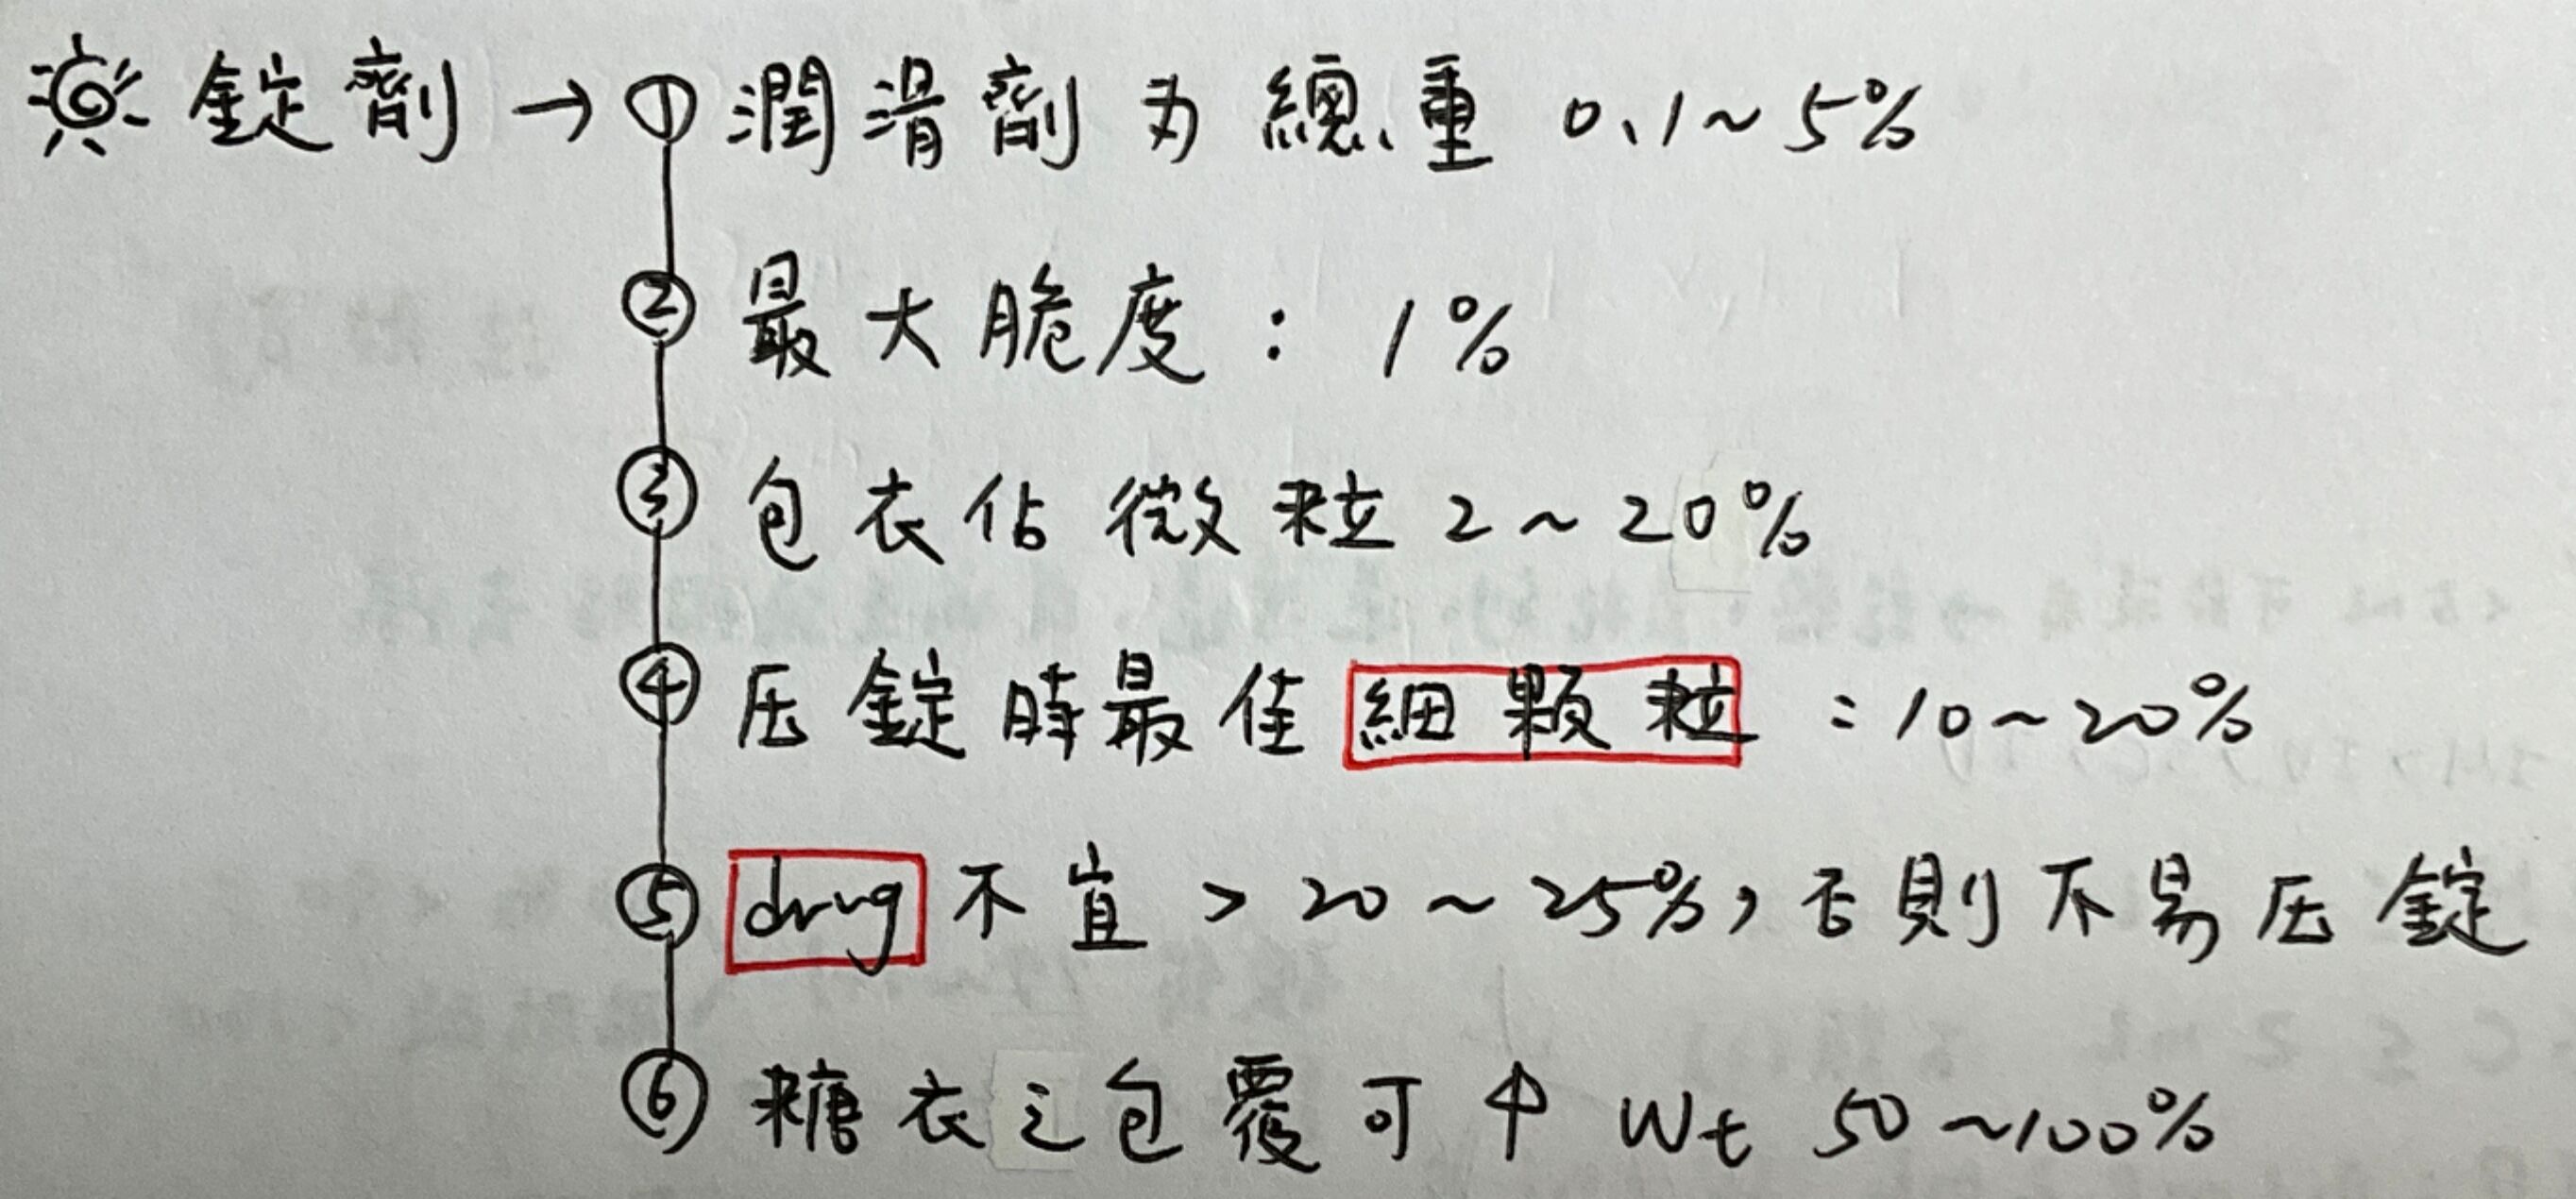 錠劑 → ① 潤滑劑為總重 0.1~5%
② 最大脆度: 1%
③ 包衣佔微粒 2~20%
④ 压錠時最佳細顆粒: 10~20%
⑤ drug 不宜 > 20~25%, 否則不易压錠
⑥ 糖衣之包覆可↑ Wt 50~100%